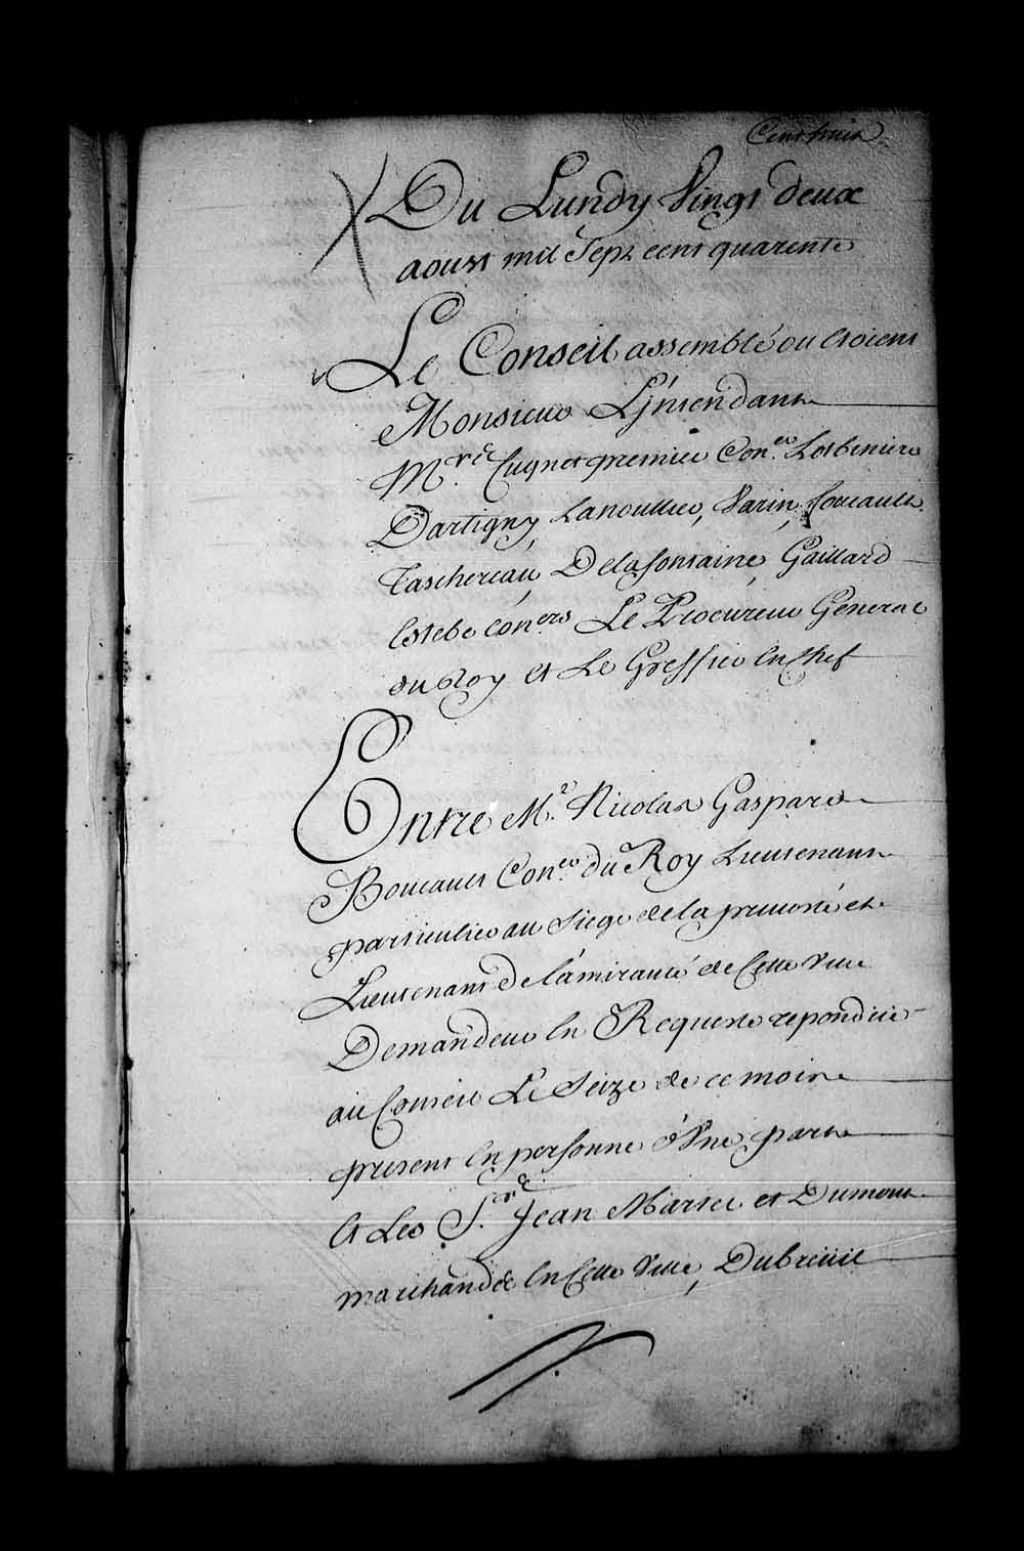 Cent huit
Du Lundy Vingt deux
aoust mil Sept cent quarente
Le Conseil assemblé ou Etoient
Monsieur L'Intendant
Mre. Cugnet premier Coner. Lotbiniere
Dartigny, Lanoullier, Varin, foucault
Taschereau, Delafontaine, Gaillard
Estebe Coners Le Procureur General
du Roy et Le Greffier En Chef
Entre Me. Nicolas Gaspard
Boucault Coner. du Roy Lieutenant
particulier au siege de la prevosté et
Lieutenant de l'amirauté de Cette Ville
Demandeur En Requeste repondüe
au Conseil Le Seize de ce mois
present En personne d'Une part
Et Les Srs. Jean Martel et Dumont
marchands En Cette Ville, Dubreüil